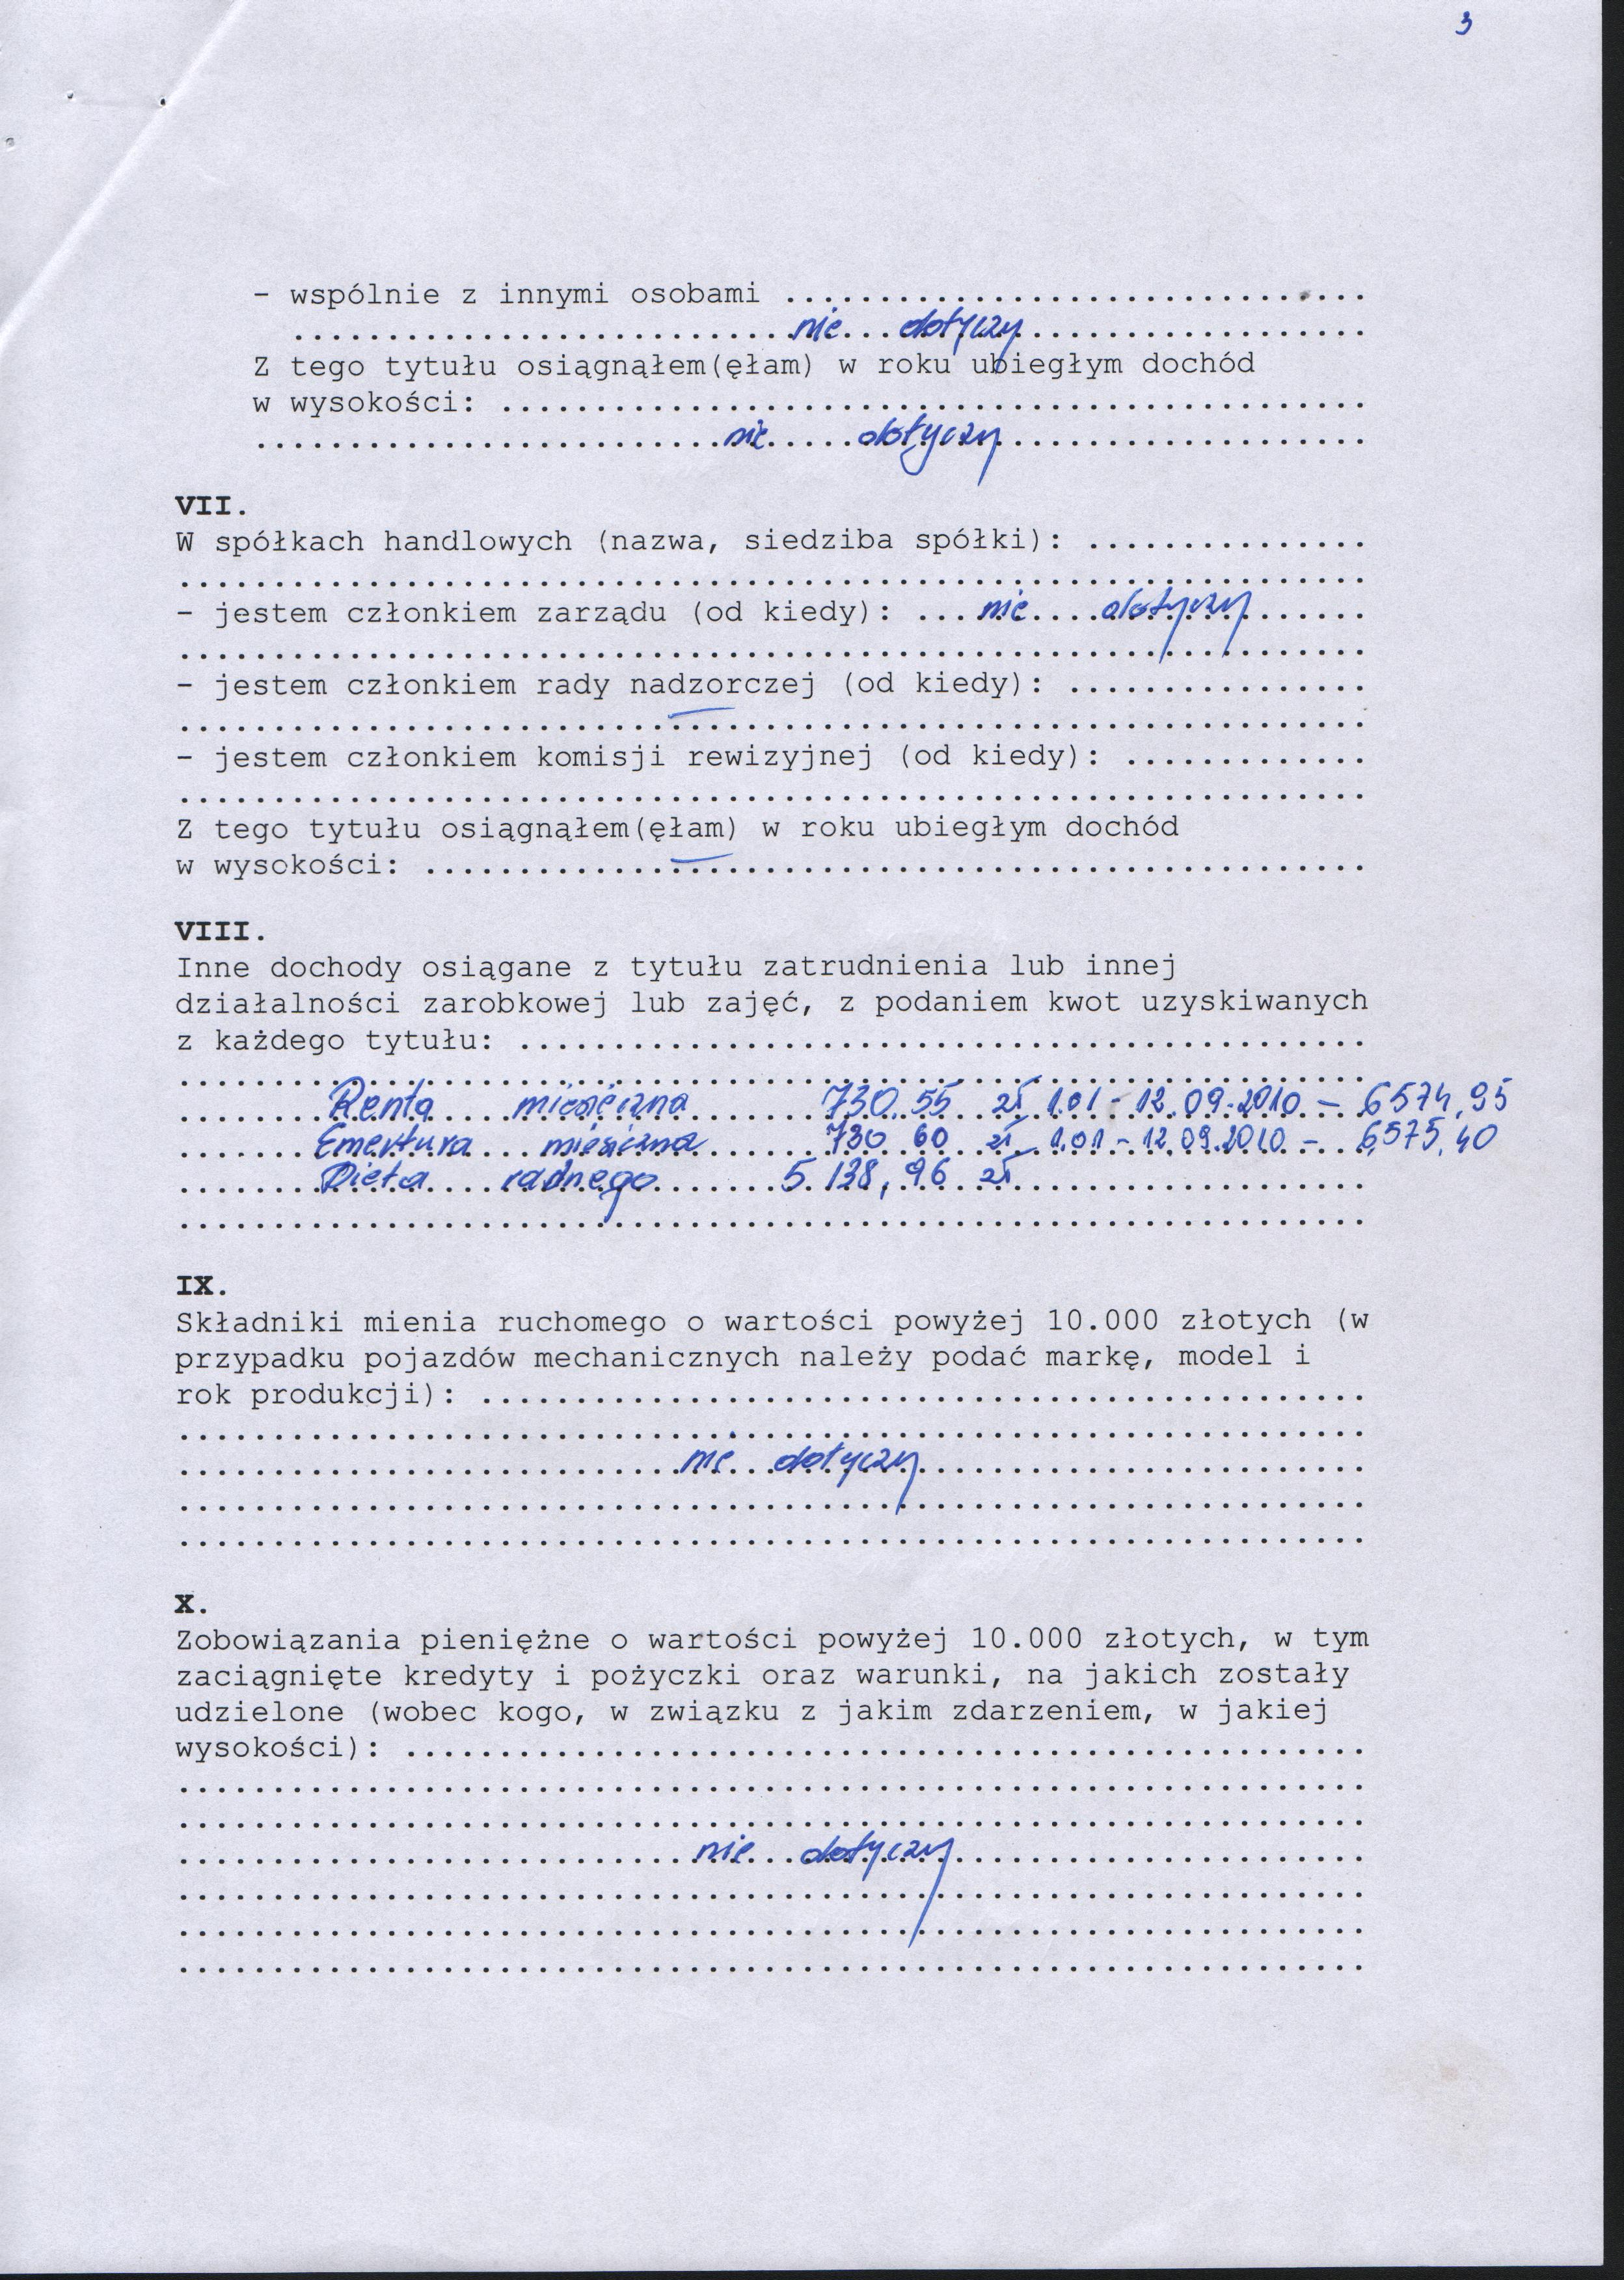 3
- wspólnie z innymi osobami ..............................
...........................nie...dotyczy..................
Z tego tytułu osiągnąłem(ęłam) w roku ubiegłym dochód
w wysokości: ..............................................
.........................nie.....dotyczy...................
VII.
W spółkach handlowych (nazwa, siedziba spółki): ...............
...............................................................
- jestem członkiem zarządu (od kiedy): ...nie....dotyczy......
...............................................................
- jestem członkiem rady nadzorczej (od kiedy): ................
—
...............................................................
- jestem członkiem komisji rewizyjnej (od kiedy): .............
...............................................................
Z tego tytułu osiągnąłem(ęłam) w roku ubiegłym dochód
w wysokości: .............—....................................
VIII.
Inne dochody osiągane z tytułu zatrudnienia lub innej
działalności zarobkowej lub zajęć, z podaniem kwot uzyskiwanych
z każdego tytułu: .............................................
...............................................................
Renta miesięczna 730,55 zł 1.01 - 12.09.2010 - 6574,95
Emertura miesiczna 730 60 zł 1.01 - 12.09.2010 - 6575,40
Dieta radnego 5.138,96 zł
...............................................................
IX.
Składniki mienia ruchomego o wartości powyżej 10.000 złotych (w
przypadku pojazdów mechanicznych należy podać markę, model i
rok produkcji): ...............................................
...............................................................
...........................nie...dotyczy.......................
...............................................................
...............................................................
X.
Zobowiązania pieniężne o wartości powyżej 10.000 złotych, w tym
zaciągnięte kredyty i pożyczki oraz warunki, na jakich zostały
udzielone (wobec kogo, w związku z jakim zdarzeniem, w jakiej
wysokości): ...................................................
...............................................................
...............................................................
............................nie...dotyczy......................
...............................................................
...............................................................
...............................................................